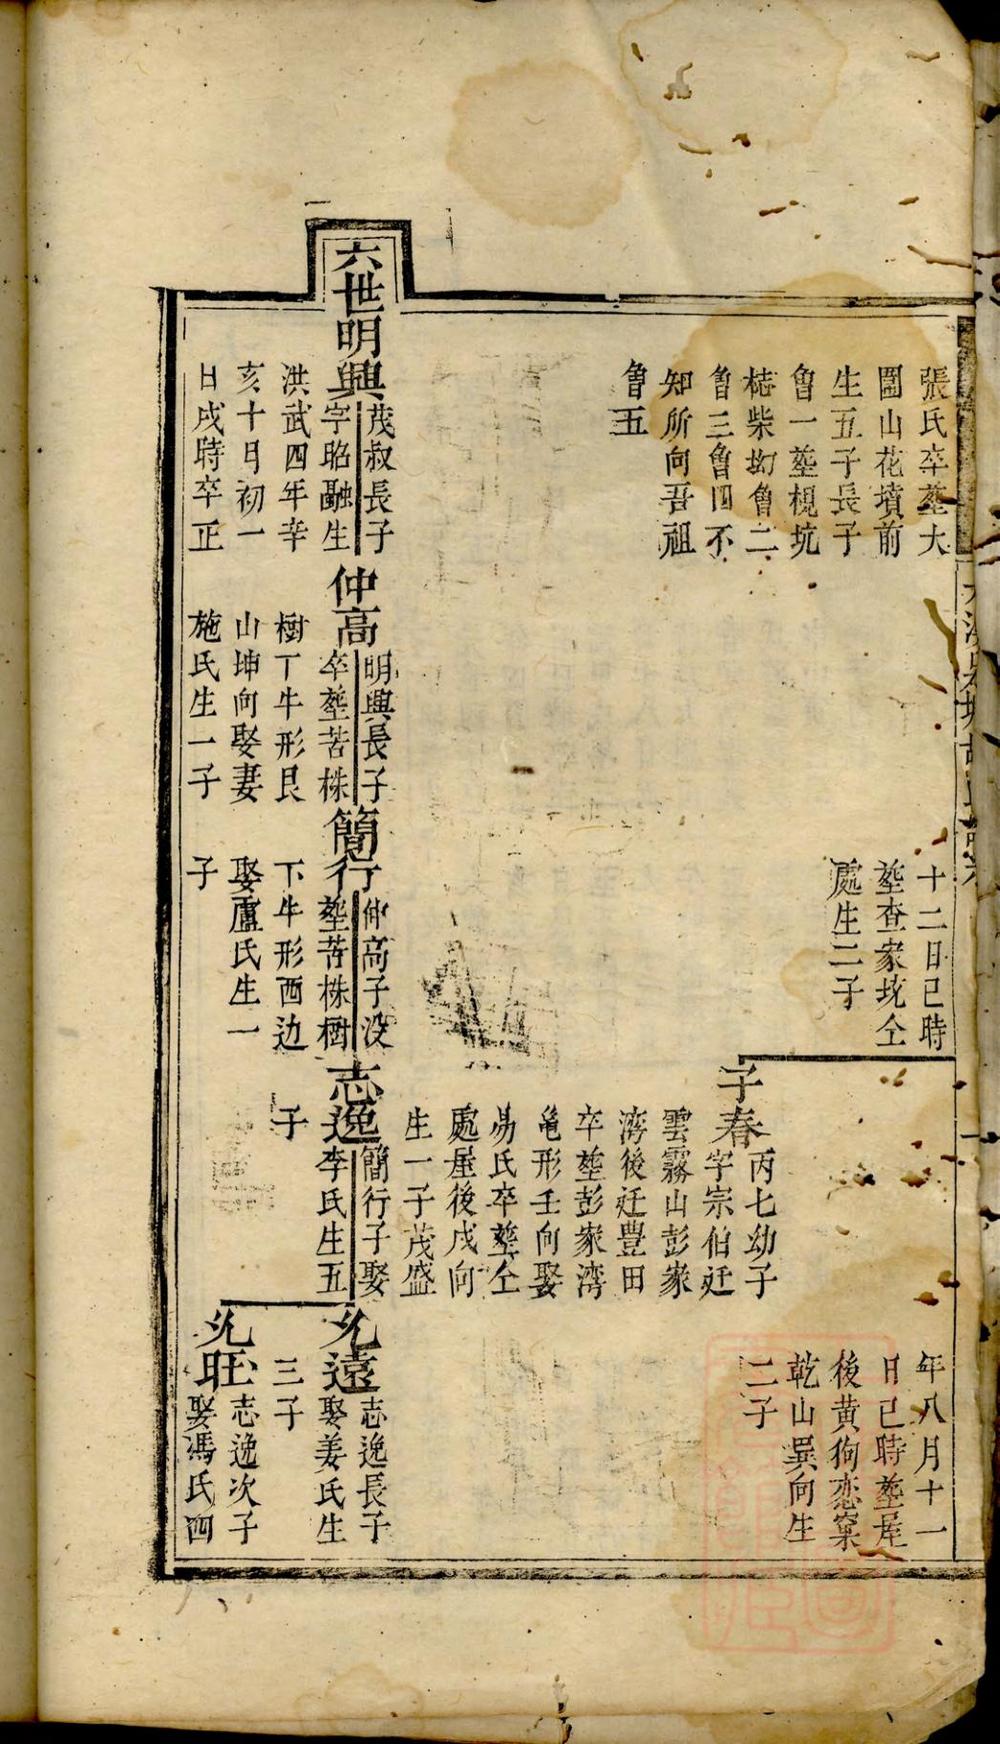 張氏卒塟大
圖山花墳前
生五子長子
魯一塟梘坑
魯二
魯三魯四不
知所向吾祖
魯五
十二日巳時
塟查家坑仝
處生二子
子春
丙七幼子
字宗伯迁
雲霧山彭家
湾後迁豊田
卒塟彭家湾
亀形壬向娶
易氏卒塟仝
處屋後戌向
生一子茂盛
年八月十一
日己時塟屋
後黄狗恋窠
乾山巽向生
二子
六世
明興
茂叔長子
字昭融生
洪武四年辛
亥十月初一
日戌時卒正
仲高
明興長子
卒塟苦株
樹丅牛形艮
山坤向娶妻
施氏生一子
簡行
仲高子没
塟苦株樹
下牛形酉边
娶盧氏生一
子
志逸
簡行子娶
李氏生五
子
允遠
志逸長子
娶姜氏生
三子
允旺
志逸次子
娶馮氏四